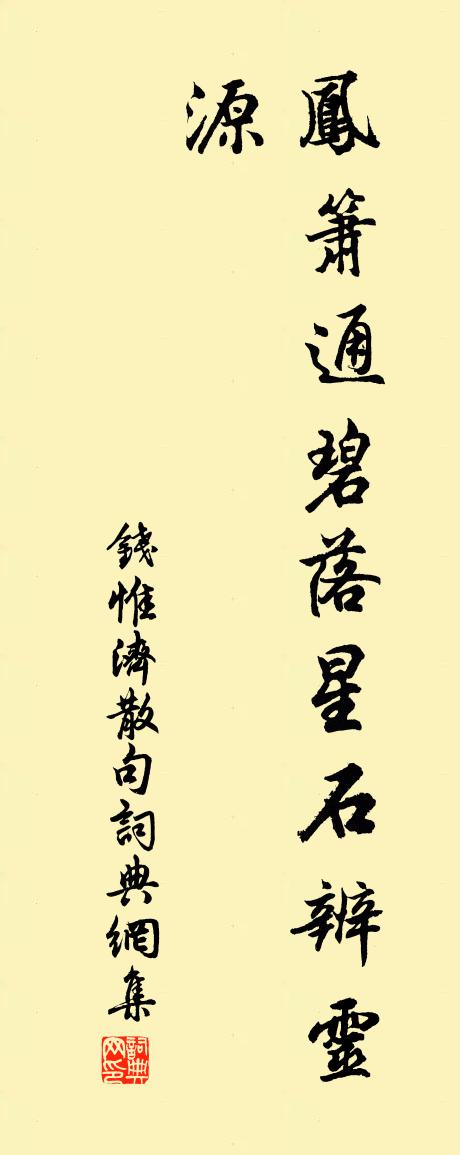 鳳簫通碧落星石辨靈
源
錢惟濟散句詞典網集
詞典
网印